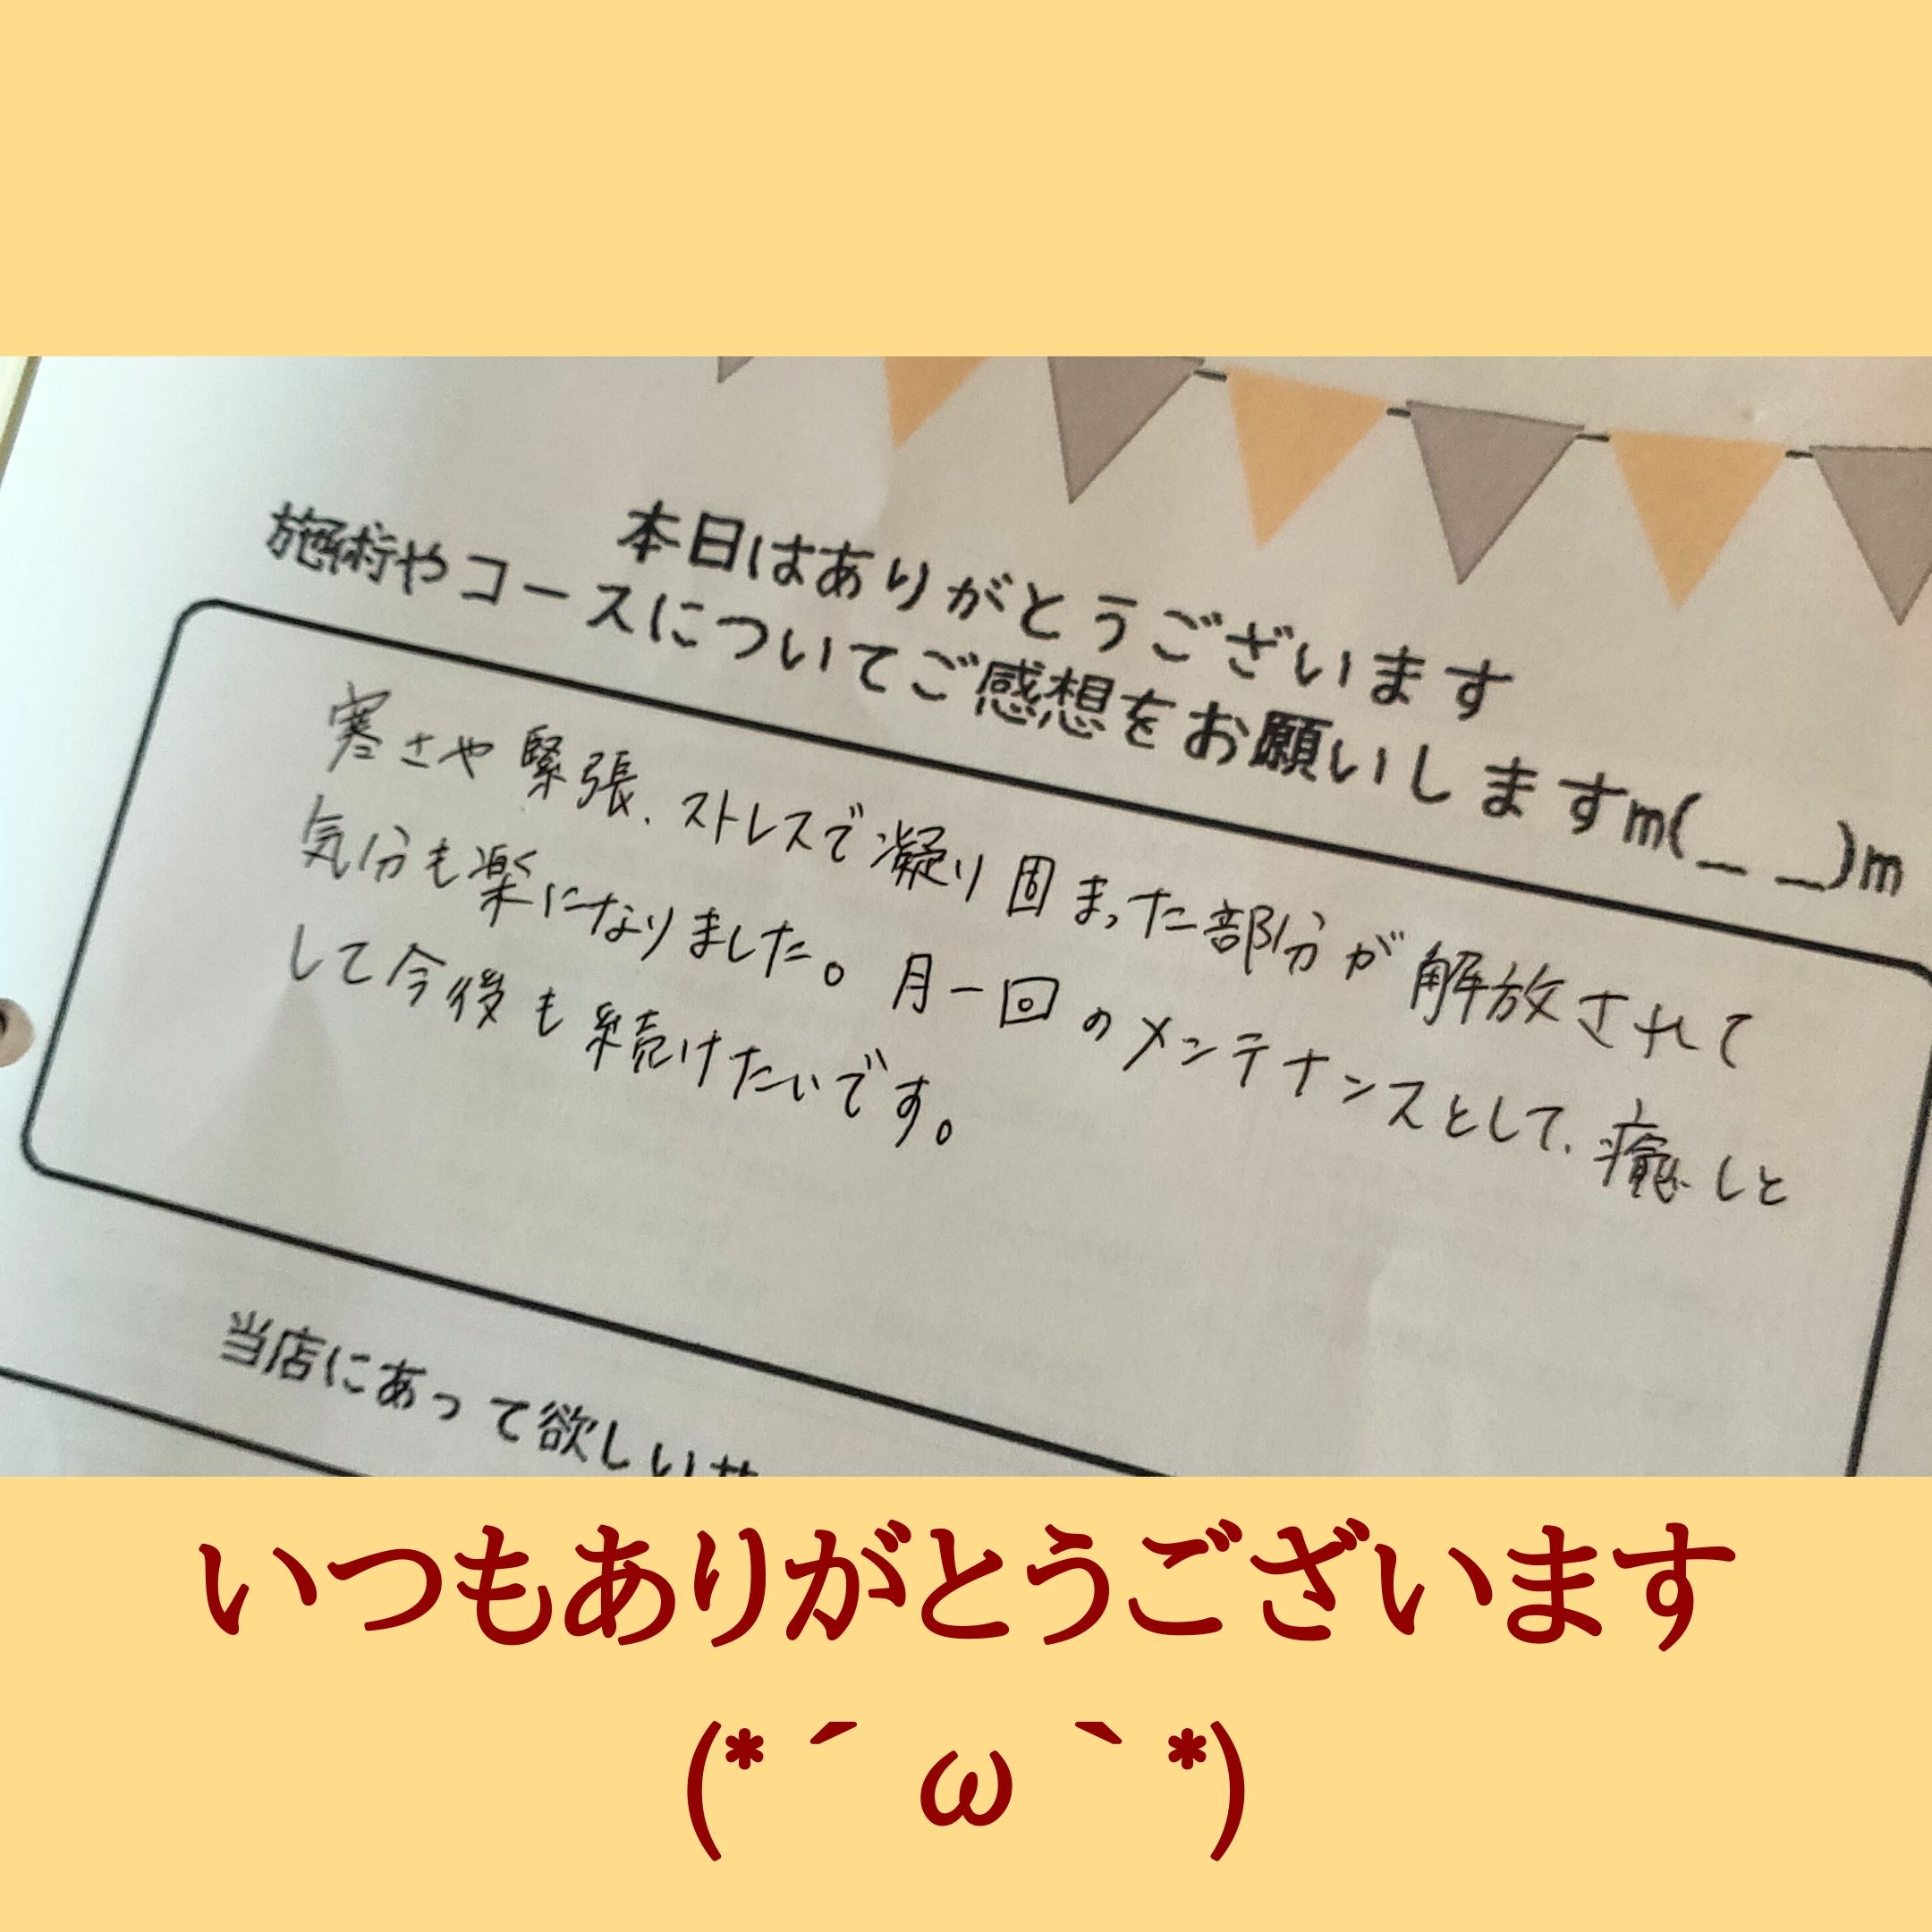 本日はありがとうございます
施術やコースについてご感想をお願いしますm(_ _)m
寒さや緊張、ストレスで凝り固まった部分が解放されて
気分も楽になりました。月一回のメンテナンスとして、癒しと
して今後も続けたいです。
当店にあって欲しい
いつもありがとうございます
(*´ω｀*)